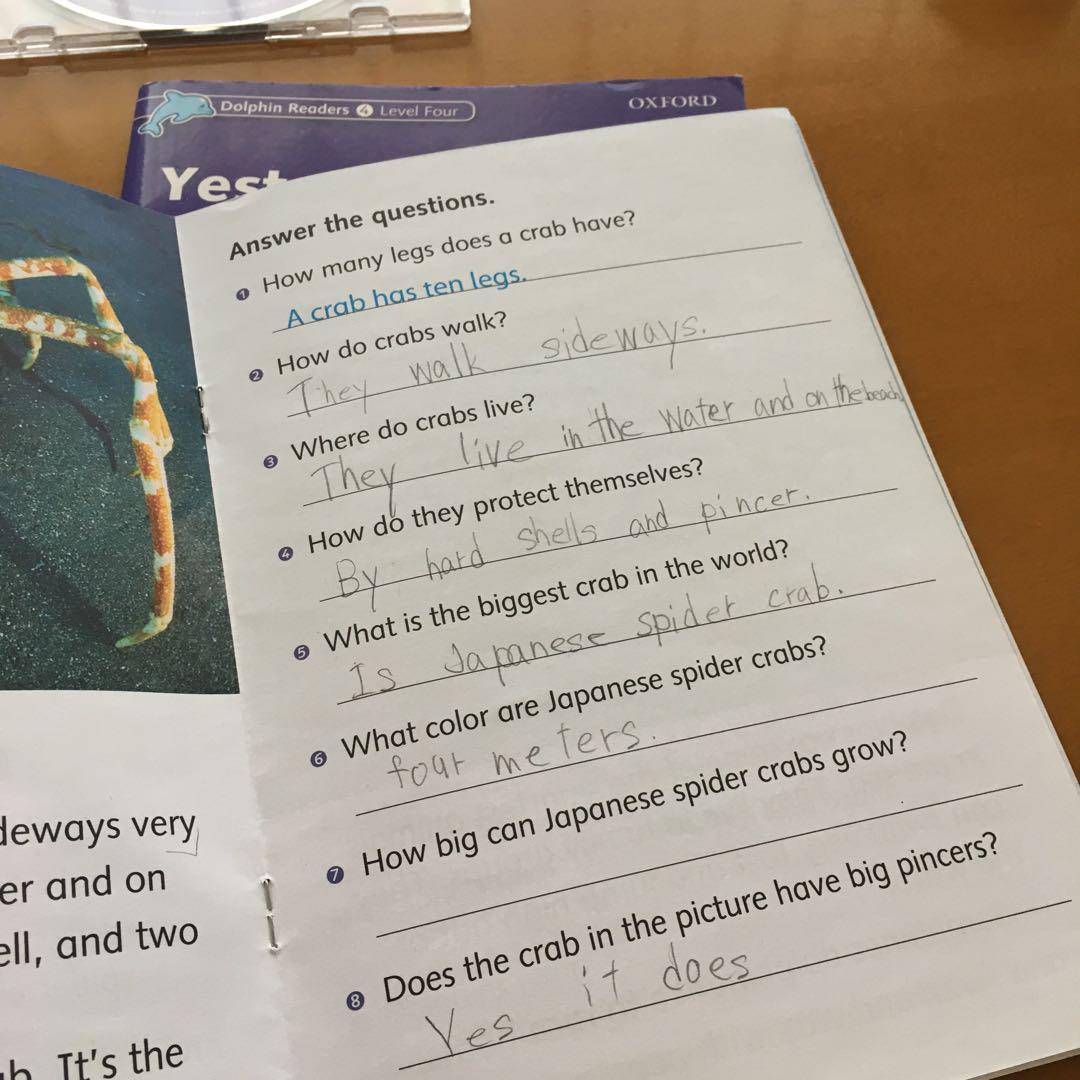 Dolphin Readers 4 Level Four
OXFORD
Answer the questions.
1 How many legs does a crab have?
A crab has ten legs.
2 How do crabs walk?
They walk sideways.
3 Where do crabs live?
They live in the water and on the beach
4 How do they protect themselves?
By hard shells and pincer.
5 What is the biggest crab in the world?
Is Japanese spider crab.
6 What color are Japanese spider crabs?
four meters.
7 How big can Japanese spider crabs grow?
8 Does the crab in the picture have big pincers?
Yes it does
very
and on
and two
It's the